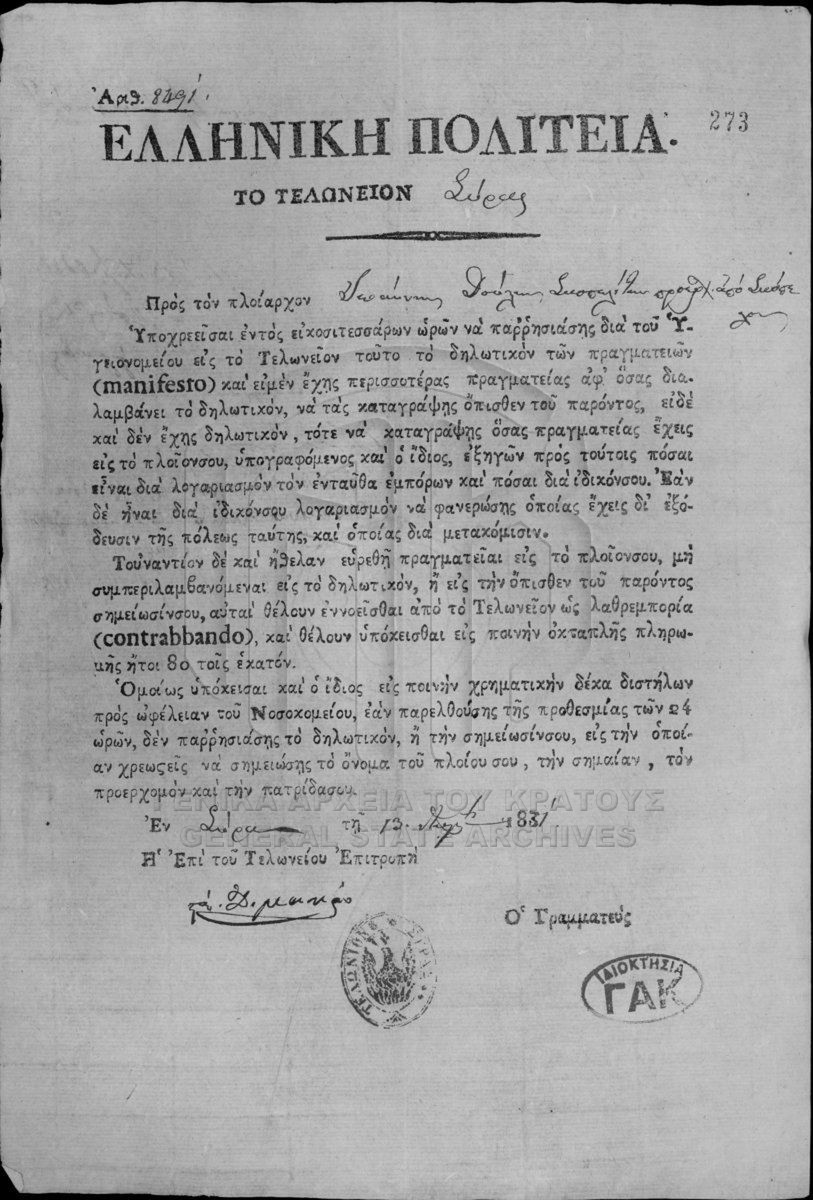 Ἀριθ. 8491.
273
ΕΛΛΗΝΙΚΗ ΠΟΛΙΤΕΙΑ.
ΤΟ ΤΕΛΩΝΕΙΟΝ Σύρας
Πρὸς τὸν πλοίαρχον ἀπὸ
Ὑποχρεεῖσαι ἐντὸς εἰκοσιτεσσάρων ὡρῶν νὰ παῤῥησιάσῃς διὰ τοῦ Ὑ-
γειονομείου εἰς τὸ Τελωνεῖον τοῦτο τὸ δηλωτικὸν τῶν πραγματειῶν
(manifesto) καὶ εἰμὲν ἔχῃς περισσοτέρας πραγματείας ἀφ᾽ ὅσας δια-
λαμβάνει τὸ δηλωτικὸν, νὰ τὰς καταγράψῃς ὄπισθεν τοῦ παρόντος, εἰδὲ
καὶ δὲν ἔχῃς δηλωτικὸν, τότε νὰ καταγράψῃς ὅσας πραγματείας ἔχεις
εἰς τὸ πλοῖονσου, ὑπογραφόμενος καὶ ὁ ἴδιος, ἐξηγῶν πρὸς τούτοις πόσαι
εἶναι διὰ λογαριασμὸν τὸν ἐνταῦθα ἐμπόρων καὶ πόσαι διὰ ἰδικόνσου. Ἐὰν
δὲ ἦναι διὰ ἰδικόνσου λογαριασμὸν νὰ φανερώσῃς ὁποίας ἔχεις δι᾽ ἐξό-
δευσιν τῆς πόλεως ταύτης, καὶ ὁποίας διὰ μετακόμισιν.
Τοὐναντίον δὲ καὶ ἤθελαν εὑρεθῇ πραγματεῖαι εἰς τὸ πλοῖονσου, μὴ
συμπεριλαμβανόμεναι εἰς τὸ δηλωτικὸν, ἢ εἰς τὴν ὄπισθεν τοῦ παρόντος
σημείωσίνσου, αὐταὶ θέλουν ἐννοεῖσθαι ἀπὸ τὸ Τελωνεῖον ὡς λαθρεμπορία
(contrabbando), καὶ θέλουν ὑπόκεισθαι εἰς ποινὴν ὀκταπλῆς πληρω-
μῆς ἤτοι 80 τοῖς ἑκατόν.
Ὁμοίως ὑπόκεισαι καὶ ὁ ἴδιος εἰς ποινὴν χρηματικὴν δέκα διστήλων
πρὸς ὠφέλειαν τοῦ Νοσοκομείου, ἐὰν παρελθούσης τῆς προθεσμίας τῶν 24
ὡρῶν, δὲν παῤῥησιάσῃς τὸ δηλωτικὸν, ἢ τὴν σημείωσίνσου, εἰς τὴν ὁποί-
αν χρεωςεῖς νὰ σημειώσῃς τὸ ὄνομα τοῦ πλοίου σου, τὴν σημαίαν, τὸν
προερχομὸν καὶ τὴν πατρίδασου.
ΓΕΝΙΚΑ ΑΡΧΕΙΑ ΤΟΥ ΚΡΑΤΟΥΣ
Ἐν Σύρα τῇ 13. 1831
GENERAL STATE ARCHIVES
Ἡ Ἐπὶ τοῦ Τελωνείου Ἐπιτροπὴ
Ὁ Γραμματεύς
ΤΕΛΩΝΙΟΝ ΣΥΡΑΣ
ΙΔΙΟΚΤΗΣΙΑ
ΓΑΚ